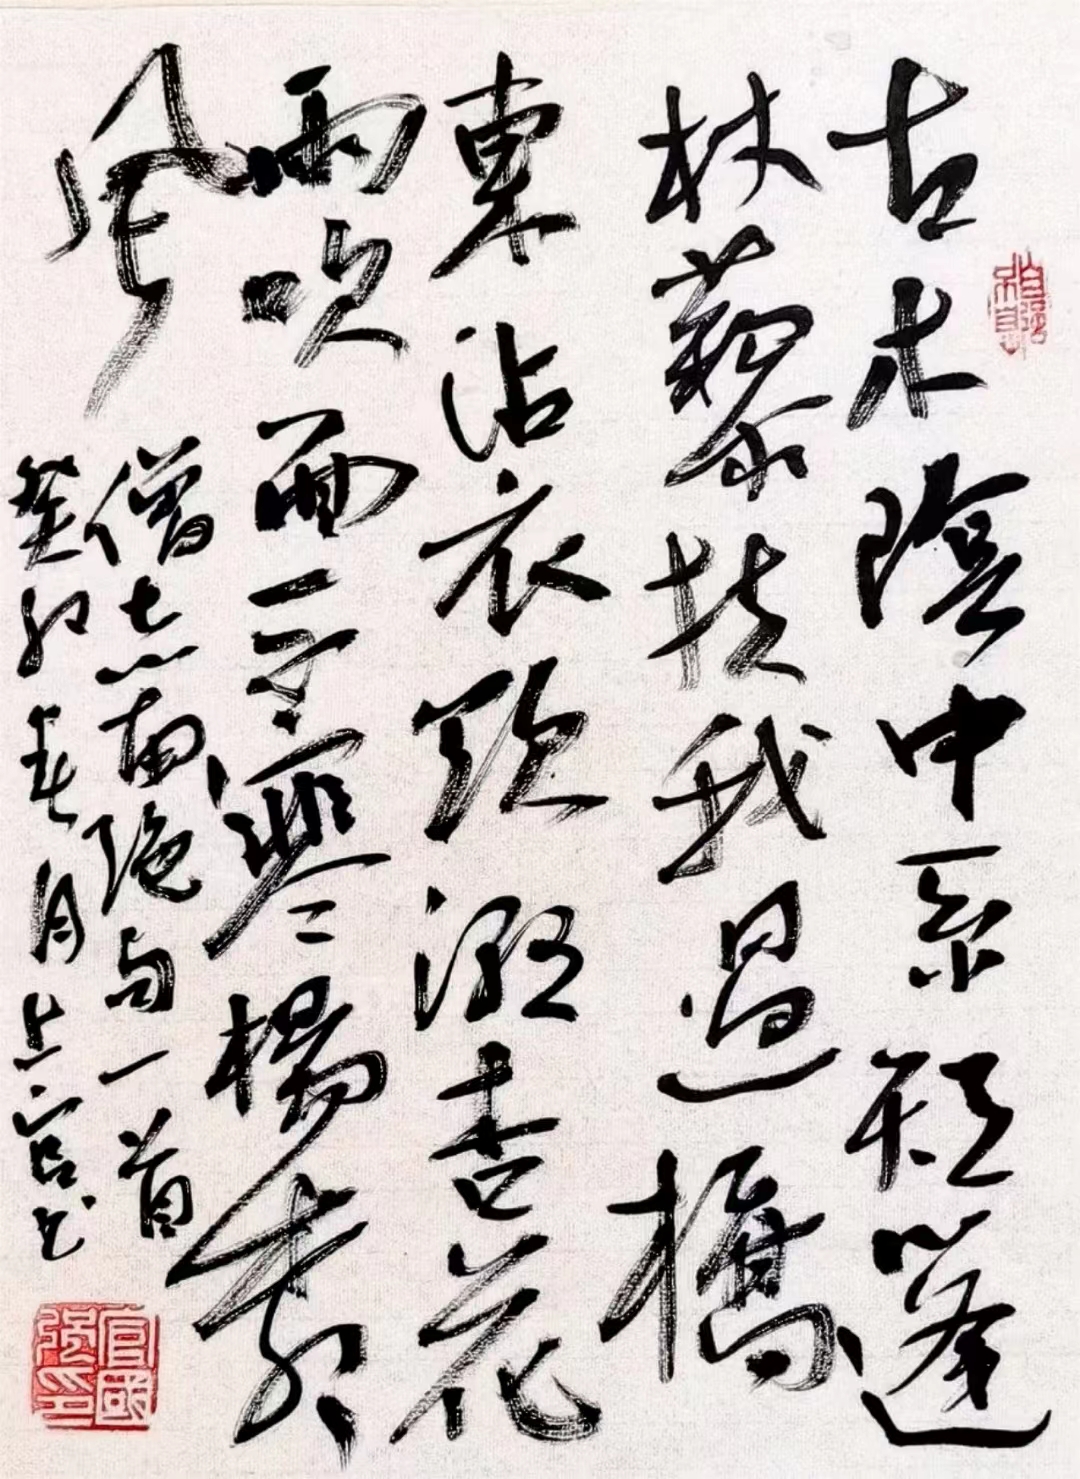 古木陰中系短篷
杖藜扶我過橋
東沾衣欲濕杏花
雨吹面不寒楊柳
風
僧志南絕句一首
癸卯春月 官书
官國
強印